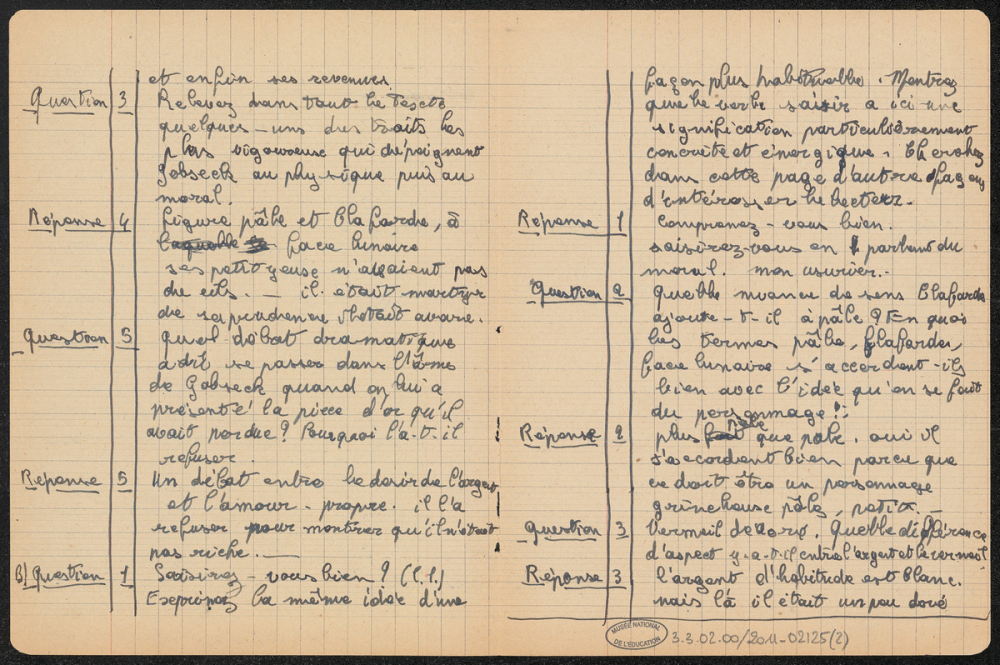 et enfin ses revenues
Question 3 Relevez dans tout le texte
quelques-uns des traits les
plus vigoureuse qui dépeignent
Gobseck au physique puis au
moral.
Réponse 4 Figure pâle et blafarde, à
laquelle face lunaire
ses petit yeuse n'avaient pas
de cils. _ il était martyr
de sa prudence
Question 5 quel débat dramatique
a dû se passer dans l'âme
de Gobseck quand on lui a
présenté la pièce d'or qu'il
avait perdue? Pourquoi l'a-t-il
refuser.
Réponse 5 Un débat entre le desir de l'argent
et l'amour-propre. il l'a
refuser pour montrer qu'il n'était
pas riche. _
B) Question 1 Saisirez-vous bien? (l.1)
Exeprimez la même idée d'une
façon plus habituelle. Montrez
que le verbe saisir a ici une
signification particulièrement
concrète et énergique. Cherchez
dans cette page d'autre façons
d'intéresser le lecteur.
Réponse 1 comprenez-vous bien.
saisirez-vous en parlant du
moral. mon usurier.-
Question 2 quelle nuance de sens blafarde
ajoute-t-il à pâle? En quoi
les termes pâle, blafarde,
face lunaire s'accordent-ils
bien avec l'idée qu'on se fait
du personnage!
Réponse 2 plus pâle que pâle. oui il
s'accordent bien parce que
ce doit être un personnage
grincheuse pâle,
Question 3 Vermeil dédoré. Quelle différence
d'aspect y-a-t-il entre l'argent et le vermeil
Réponse 3 l'argent d'habitude est blanc.
mais là il était un peu doré
MUSÉE NATIONAL
DE L'ÉDUCATION
3.3.02.00/2011-02125(2)